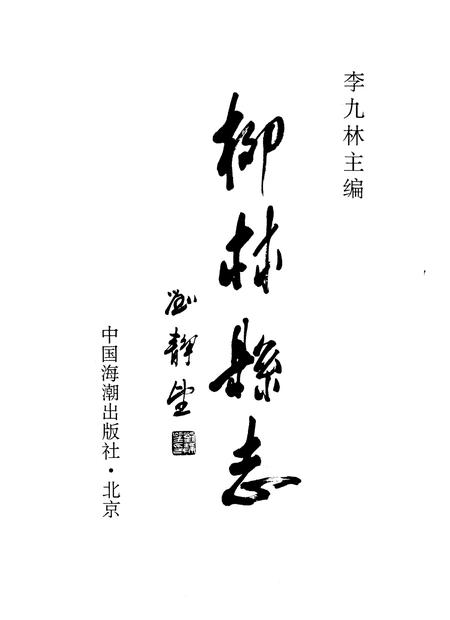 李九林主编
柳林縣志
刘静山
中国海潮出版社·北京